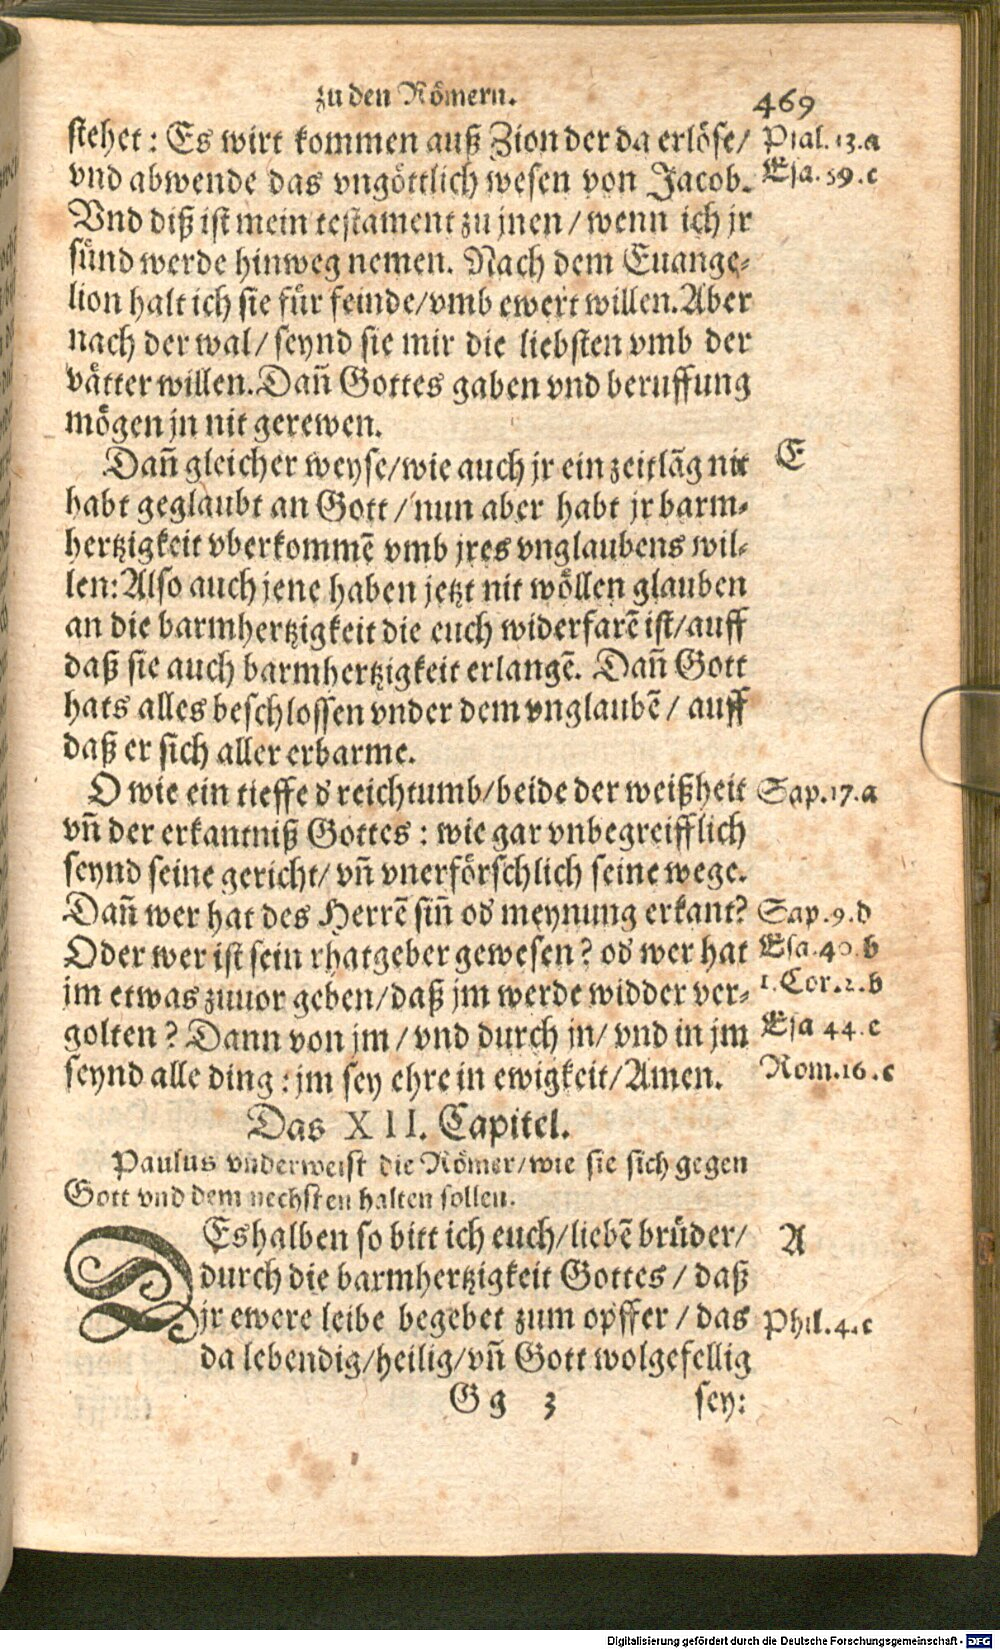 zu den Römern.
469
stehet: Es wirt kommen auß Zion der da erlöse/
Psal. 13.a
vnd abwende das vngöttlich wesen von Jacob.
Esa. 59.c
Vnd diß ist mein testament zu jnen/ wenn ich jr
sünd werde hinweg nemen. Nach dem Euange-
lion halt ich sie für feinde/vmb ewert willen. Aber
nach der wal/ seynd sie mir die liebsten vmb der
vätter willen. Dañ Gottes gaben vnd beruffung
mögen jn nit gerewen.
Dañ gleicher weyse/wie auch jr ein zeitlãg nit
E
habt geglaubt an Gott/ nun aber habt jr barm-
hertzigkeit vberkommẽ vmb jres vnglaubens wil-
len: Also auch jene haben jetzt nit wöllen glauben
an die barmhertzigkeit die euch widerfarẽ ist/auff
daß sie auch barmhertzigkeit erlangẽ. Dañ Gott
hats alles beschlossen vnder dem vnglaubẽ/ auff
daß er sich aller erbarme.
O wie ein tieffe d reichtumb/beide der weißheit
Sap. 17.a
vñ der erkantniß Gottes: wie gar vnbegreifflich
seynd seine gericht/ vñ vnerförschlich seine wege.
Dañ wer hat des Herrẽ siñ od meynung erkant?
Sap. 9.d
Oder wer ist sein rhatgeber gewesen? od wer hat
Esa. 40.b
jm etwas zuuor geben/daß jm werde widder ver-
1. Cor. 2.b
golten? Dann von jm/ vnd durch jn/ vnd in jm
Esa 44.c
seynd alle ding: jm sey ehre in ewigkeit/Amen.
Rom. 16.c
Das XII. Capitel.
Paulus vnderweist die Römer/wie sie sich gegen
Gott vnd dem nechsten halten sollen.
DEshalben so bitt ich euch/liebẽ brüder/
A
durch die barmhertzigkeit Gottes/ daß
jr ewere leibe begebet zum opffer/ das
Phil. 4.c
da lebendig/heilig/vñ Gott wolgefellig
Gg 3
sey:
Digitalisierung gefördert durch die Deutsche Forschungsgemeinschaft - DFG